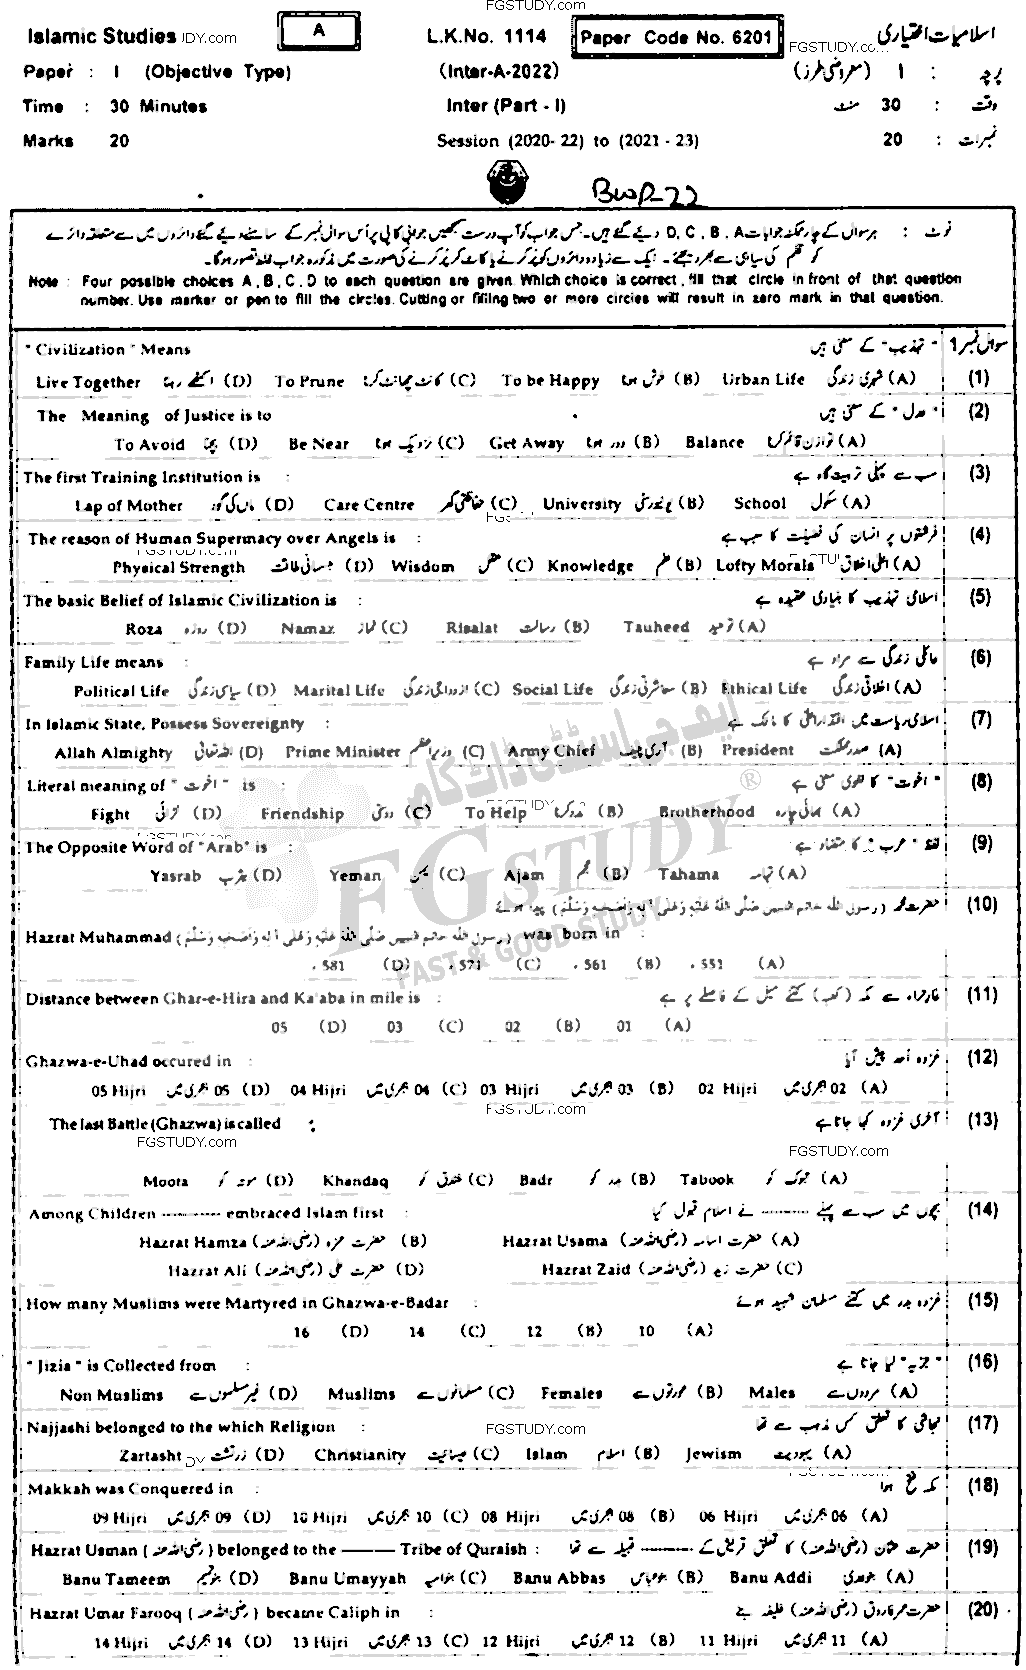 FGSTUDY.com
Islamic Studies UDY.com A L.K.No. 1114 Paper Code No. 6201 FGSTUDY.com اسلامیات اختیاری
Paper : I (Objective Type) (Inter-A-2022) پرچہ : I (معروضی طرز)
Time : 30 Minutes Inter (Part - I) وقت : 30 منٹ
Marks 20 Session (2020- 22) to (2021 - 23) نمبرات : 20
BWP-22
نوٹ : ہر سوال کے چار ممکنہ جوابات D, C, B, A دیے گئے ہیں۔ جس جواب کو آپ درست سمجھیں جوابی کاپی پر اُس سوال نمبر کے سامنے دیے گئے دائروں میں سے متعلقہ دائرے
کو قلم کی سیاہی سے بھر دیجئے۔ ایک سے زیادہ دائروں کو پُر کرنے یا کاٹ کر پُر کرنے کی صورت میں مذکورہ جواب غلط تصور ہوگا۔
Note : Four possible choices A, B, C, D to each question are given. Which choice is correct, fill that circle in front of that question
number. Use marker or pen to fill the circles. Cutting or filling two or more circles will result in zero mark in that question.
" Civilization " Means "تہذیب" کے معنی ہیں سوال نمبر 1
Live Together اکٹھے رہنا (D) To Prune کانٹ چھانٹ کرنا (C) To be Happy خوش ہونا (B) Urban Life شہری زندگی (A) (1)
The Meaning of Justice is to "عدل" کے معنی ہیں (2)
To Avoid بچنا (D) Be Near نزدیک ہونا (C) Get Away دور ہونا (B) Balance توازن قائم کرنا (A)
The first Training Institution is : سب سے پہلی تربیت گاہ ہے (3)
Lap of Mother ماں کی گود (D) Care Centre حفاظتی گھر (C) University یونیورسٹی (B) School سکول (A)
FGS
The reason of Human Supermacy over Angels is : فرشتوں پر انسان کی فضیلت کا سبب ہے (4)
FGSTUDY.com
Physical Strength جسمانی طاقت (D) Wisdom عقل (C) Knowledge علم (B) Lofty Morals اعلیٰ اخلاق (A)
The basic Belief of Islamic Civilization is : اسلامی تہذیب کا بنیادی عقیدہ ہے (5)
Roza روزہ (D) Namaz نماز (C) Risalat رسالت (B) Tauheed توحید (A)
Family Life means : عائلی زندگی سے مراد ہے (6)
Political Life سیاسی زندگی (D) Marital Life ازدواجی زندگی (C) Social Life معاشرتی زندگی (B) Ethical Life اخلاقی زندگی (A)
In Islamic State, Possess Sovereignty : اسلامی ریاست میں اقتدار اعلیٰ کا مالک ہے (7)
Allah Almighty اللہ تعالیٰ (D) Prime Minister وزیراعظم (C) Army Chief آرمی چیف (B) President صدر مملکت (A)
ایف جی اسٹڈی ڈاٹ کام
Literal meaning of " اخوت " is : "اخوت" کا لغوی معنی ہے (8)
Fight لڑائی (D) Friendship دوستی (C) To Help مدد کرنا (B) Brotherhood بھائی چارہ (A)
FGSTUDY.com
The Opposite Word of "Arab" is : لفظ "عرب" کا متضاد ہے (9)
FGSTUDY ®
Yasrab یثرب (D) Yeman یمن (C) Ajam عجم (B) Tahama تہامہ (A)
FAST & GOOD STUDY
حضرت محمد (رسول اللہ خاتم النبیین صلی اللہ علیہ وعلی آلہ واصحابہ وسلم) پیدا ہوئے (10)
Hazrat Muhammad (رسول اللہ خاتم النبیین صلی اللہ علیہ وعلی آلہ واصحابہ وسلم) was born in :
581 (D) 571 (C) 561 (B) 551 (A)
Distance between Ghar-e-Hira and Ka'aba in mile is : غارِ حراء سے مکہ (کعبہ) کتنے میل کے فاصلے پر ہے (11)
05 (D) 03 (C) 02 (B) 01 (A)
Ghazwa-e-Uhad occured in : غزوہ احد پیش آیا (12)
05 Hijri 05 ہجری میں (D) 04 Hijri 04 ہجری میں (C) 03 Hijri 03 ہجری میں (B) 02 Hijri 02 ہجری میں (A)
FGSTUDY.com
The last Battle (Ghazwa) is called : آخری غزوہ کہا جاتا ہے (13)
FGSTUDY.com FGSTUDY.com
Moota موتہ کو (D) Khandaq خندق کو (C) Badr بدر کو (B) Tabook تبوک کو (A)
Among Children ---------- embraced Islam first : بچوں میں سب سے پہلے ---------- نے اسلام قبول کیا (14)
Hazrat Hamza حضرت حمزہ (رضی اللہ عنہ) (B) Hazrat Usama حضرت اسامہ (رضی اللہ عنہ) (A)
Hazrat Ali حضرت علی (رضی اللہ عنہ) (D) Hazrat Zaid حضرت زید (رضی اللہ عنہ) (C)
How many Muslims were Martyred in Ghazwa-e-Badar : غزوہ بدر میں کتنے مسلمان شہید ہوئے (15)
16 (D) 14 (C) 12 (B) 10 (A)
" Jizia " is Collected from : "جزیہ" لیا جاتا ہے (16)
Non Muslims غیر مسلموں سے (D) Muslims مسلمانوں سے (C) Females عورتوں سے (B) Males مردوں سے (A)
Najjashi belonged to the which Religion : FGSTUDY.com نجاشی کا تعلق کس مذہب سے تھا (17)
Zartasht زرتشت (D) Christianity عیسائیت (C) Islam اسلام (B) Jewism یہودیت (A)
Makkah was Conquered in : مکہ فتح ہوا (18)
09 Hijri 09 ہجری میں (D) 10 Hijri 10 ہجری میں (C) 08 Hijri 08 ہجری میں (B) 06 Hijri 06 ہجری میں (A)
Hazrat Usman (رضی اللہ عنہ) belonged to the ——— Tribe of Quraish : حضرت عثمان (رضی اللہ عنہ) کا تعلق قریش کے ---------- قبیلہ سے تھا (19)
Banu Tameem بنوتمیم (D) Banu Umayyah بنوامیہ (C) Banu Abbas بنوعباس (B) Banu Addi بنوعدی (A)
Hazrat Umar Farooq (رضی اللہ عنہ) became Caliph in : حضرت عمر فاروق (رضی اللہ عنہ) خلیفہ بنے (20)
14 Hijri 14 ہجری میں (D) 13 Hijri 13 ہجری میں (C) 12 Hijri 12 ہجری میں (B) 11 Hijri 11 ہجری میں (A)